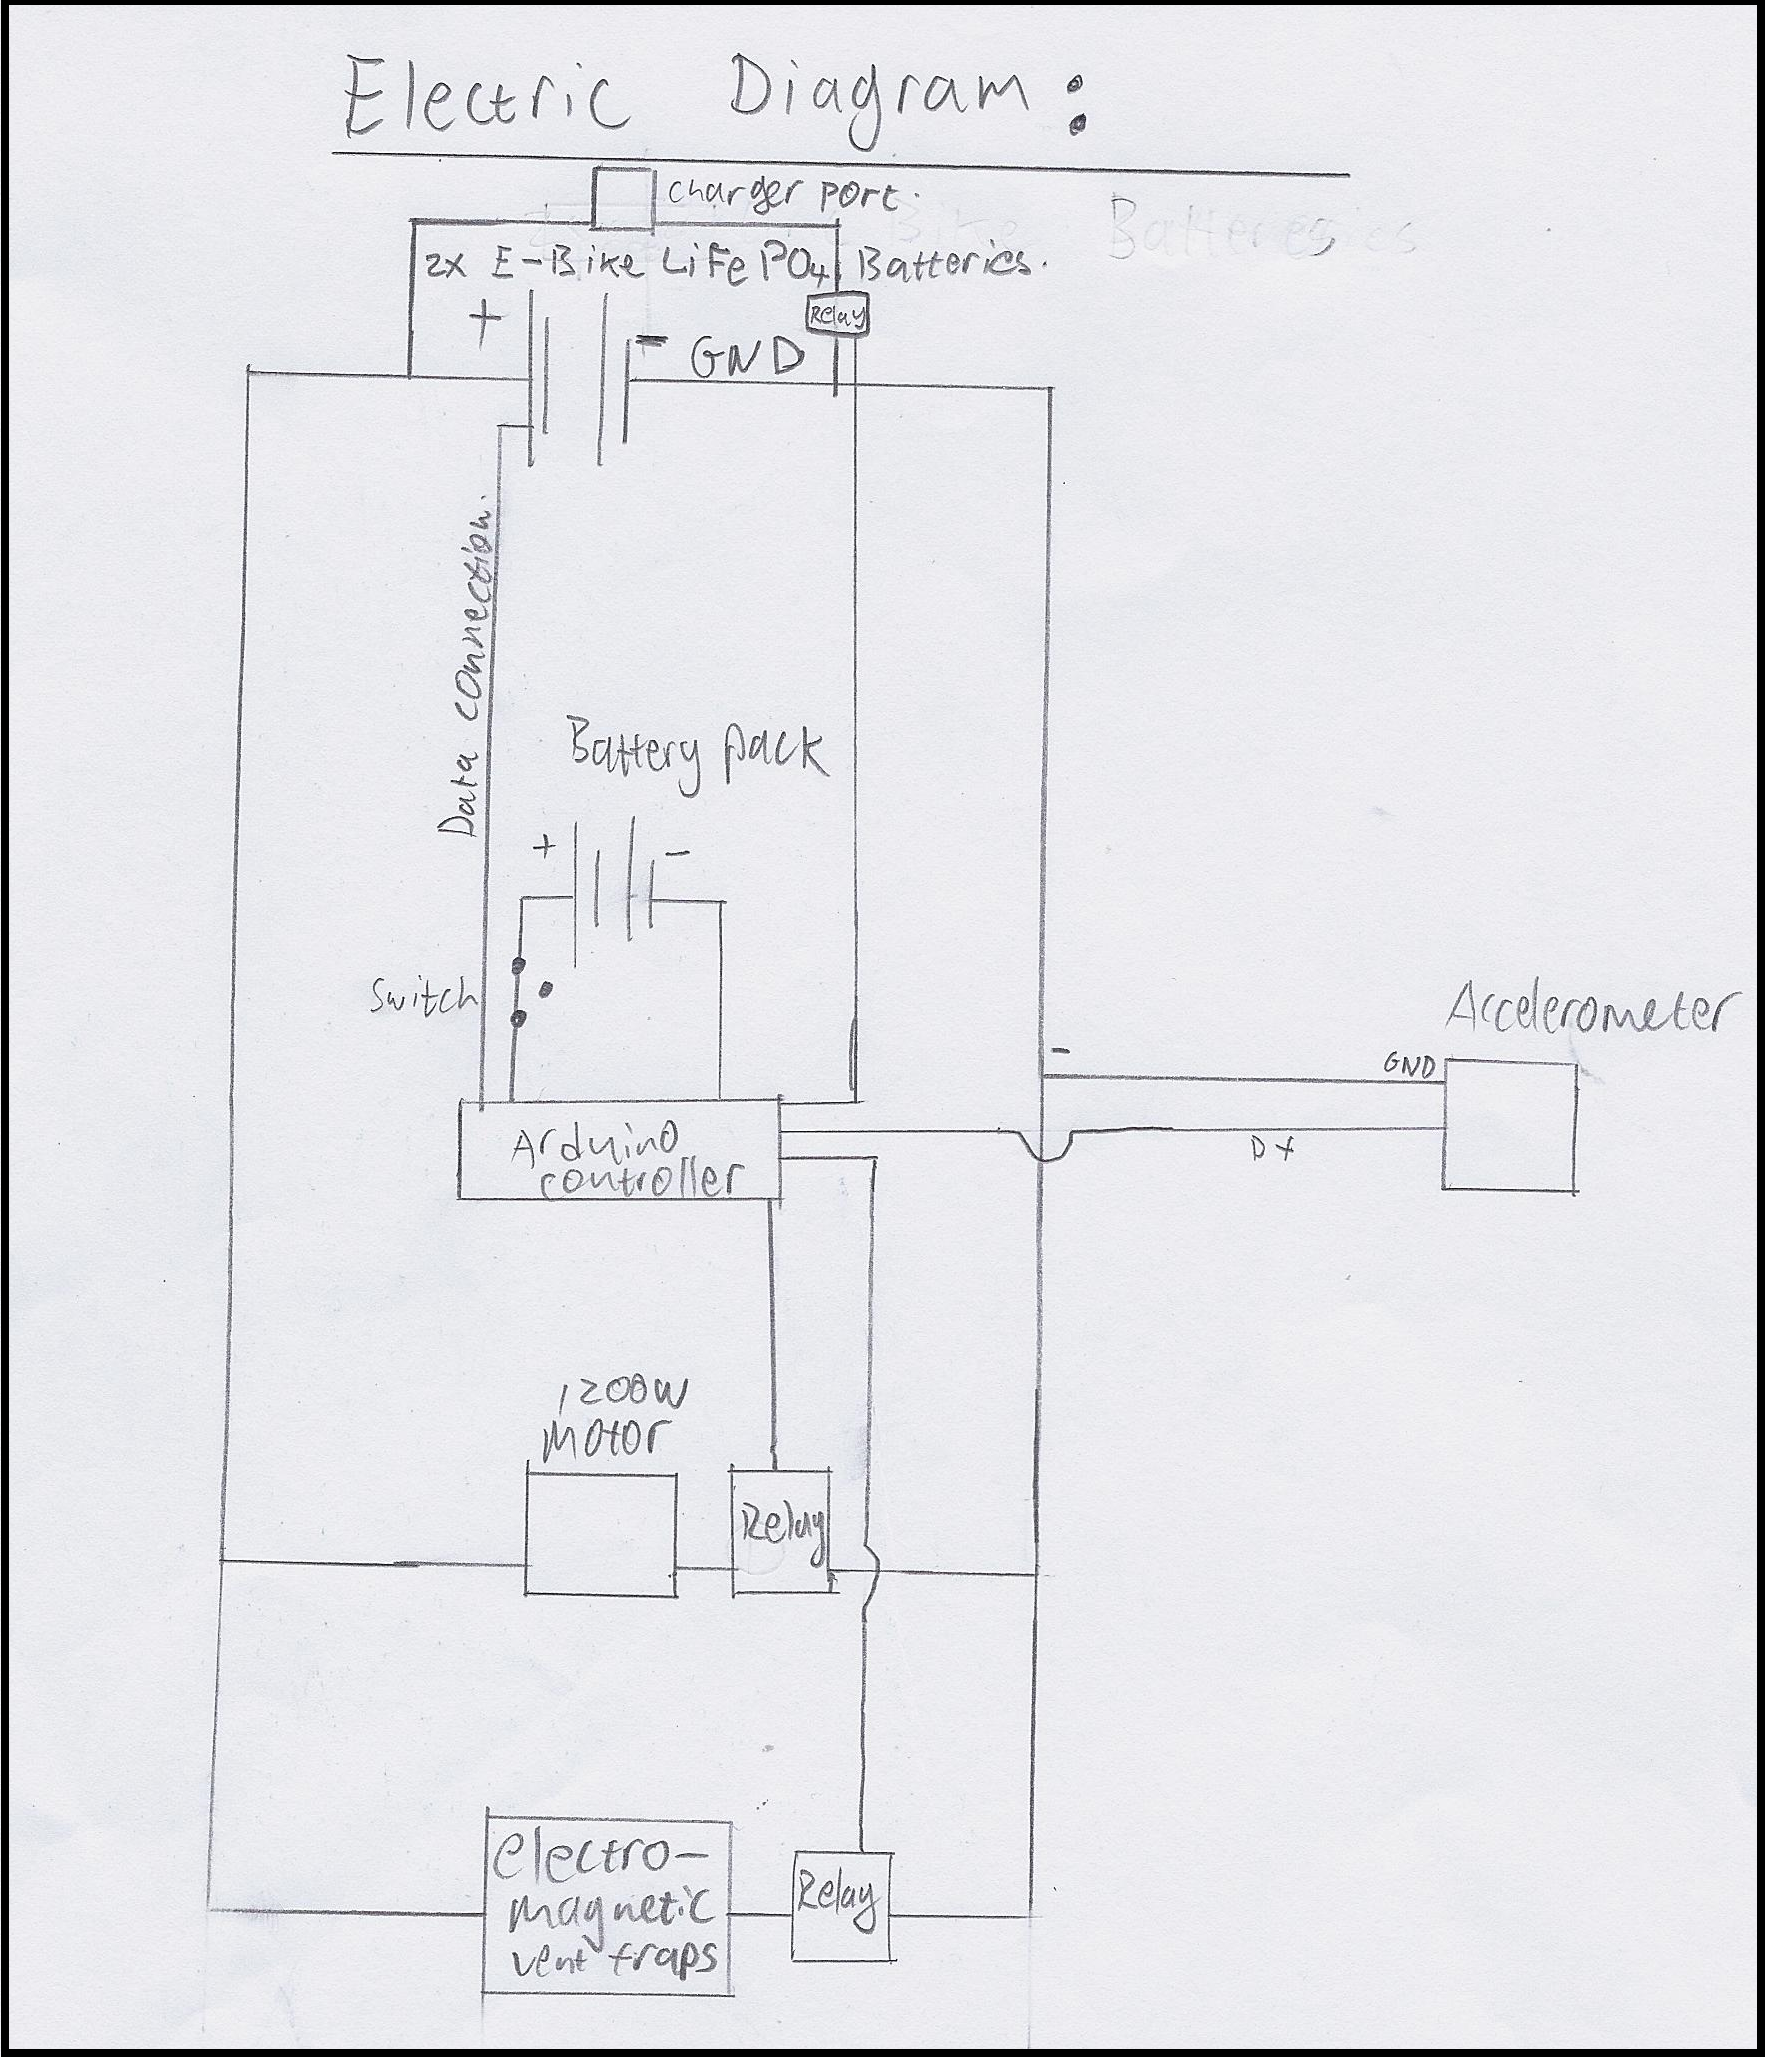 Electric Diagram:
charger port.
2x E-Bike LiFePO4 Batteries.
+
Relay
- GND
Data connection.
Battery pack
+ -
Switch
Accelerometer
-
GND
Arduino
controller
1200W
Motor
Relay
electro-
magnetic
vent traps
Relay